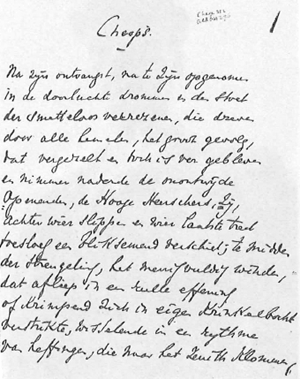 Cheops.
1
Na zijn ontvangst, na te zijn opgenomen
in de doorluchte drommen en de stoet
der smetteloos verrezenen, die draven
door alle hemelen, het groot gevolg,
dat vergezelt en toch is ver gebleven
en nimmer naderde de onontwijde
de Hooge Heerschers, Zij,
achter wier slippen en wier laatste tred
toesloeg een bliksemend verschiet; te midden
der strengeling, het menigvuldig winden,
dat afliep in een nulle effening
of krimpend zich in eigen kronkelbocht
verstrikte, wisselende in een rythme
van heffingen, die naar het Zenith klommen,